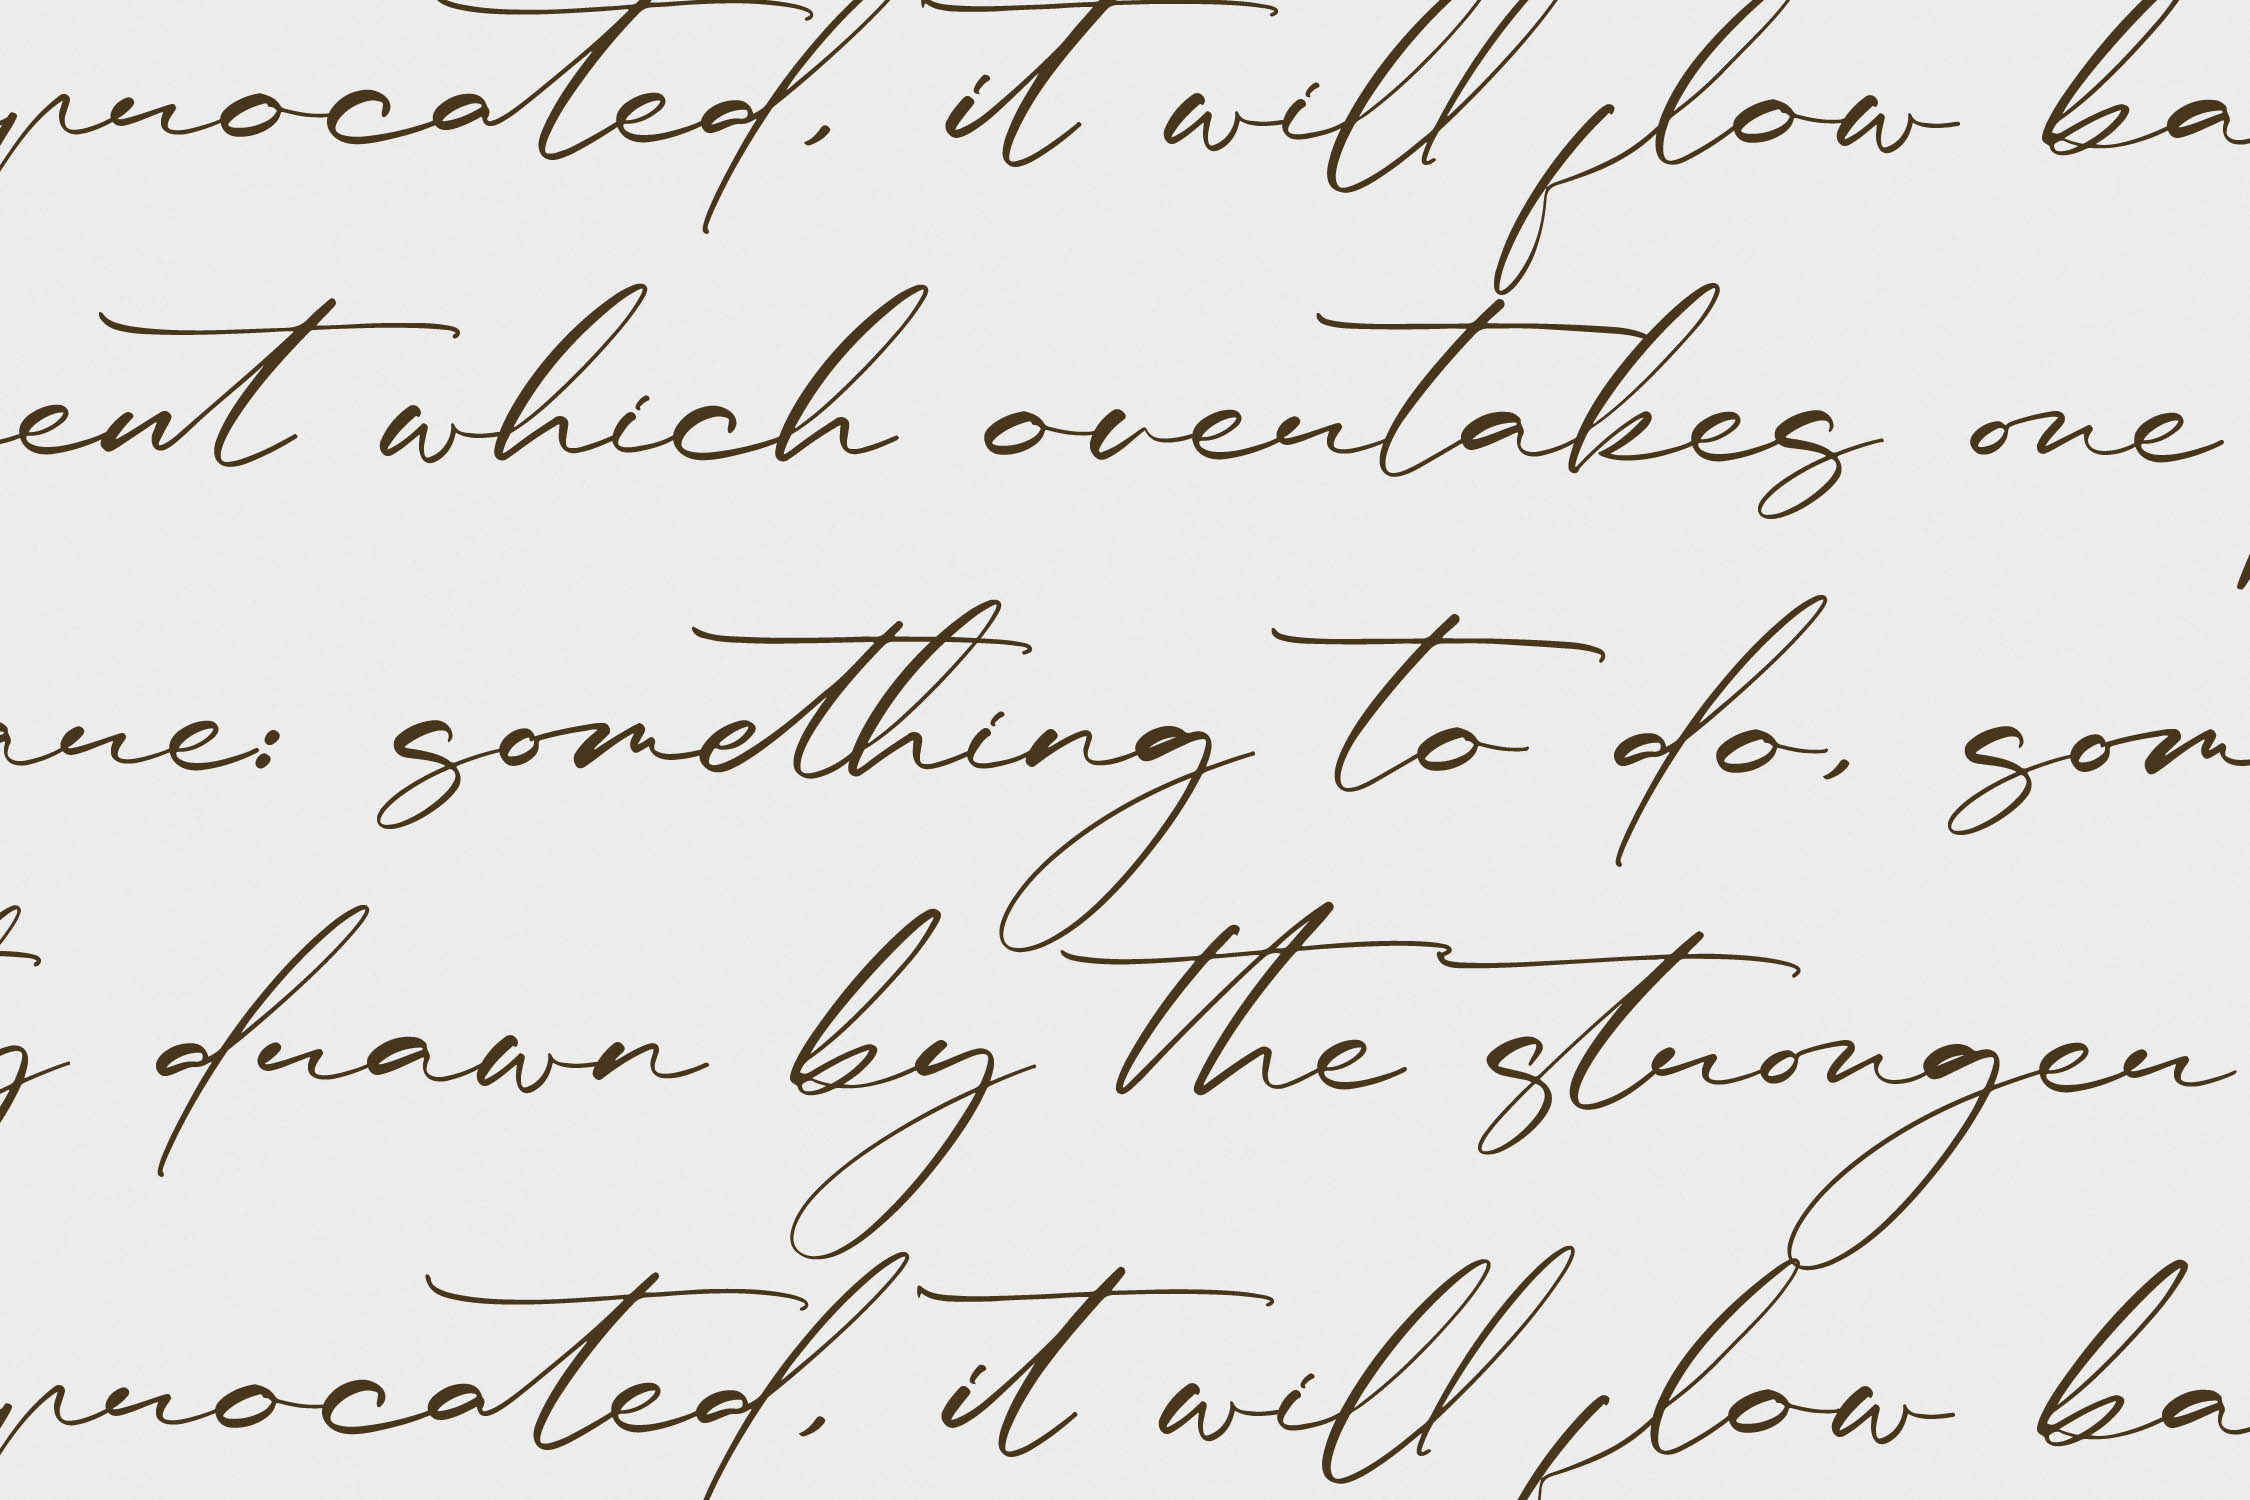 procated, it will flow ba
ent which overtakes one
rue: something to do, som
g drawn by the stronger
procated, it will flow ba